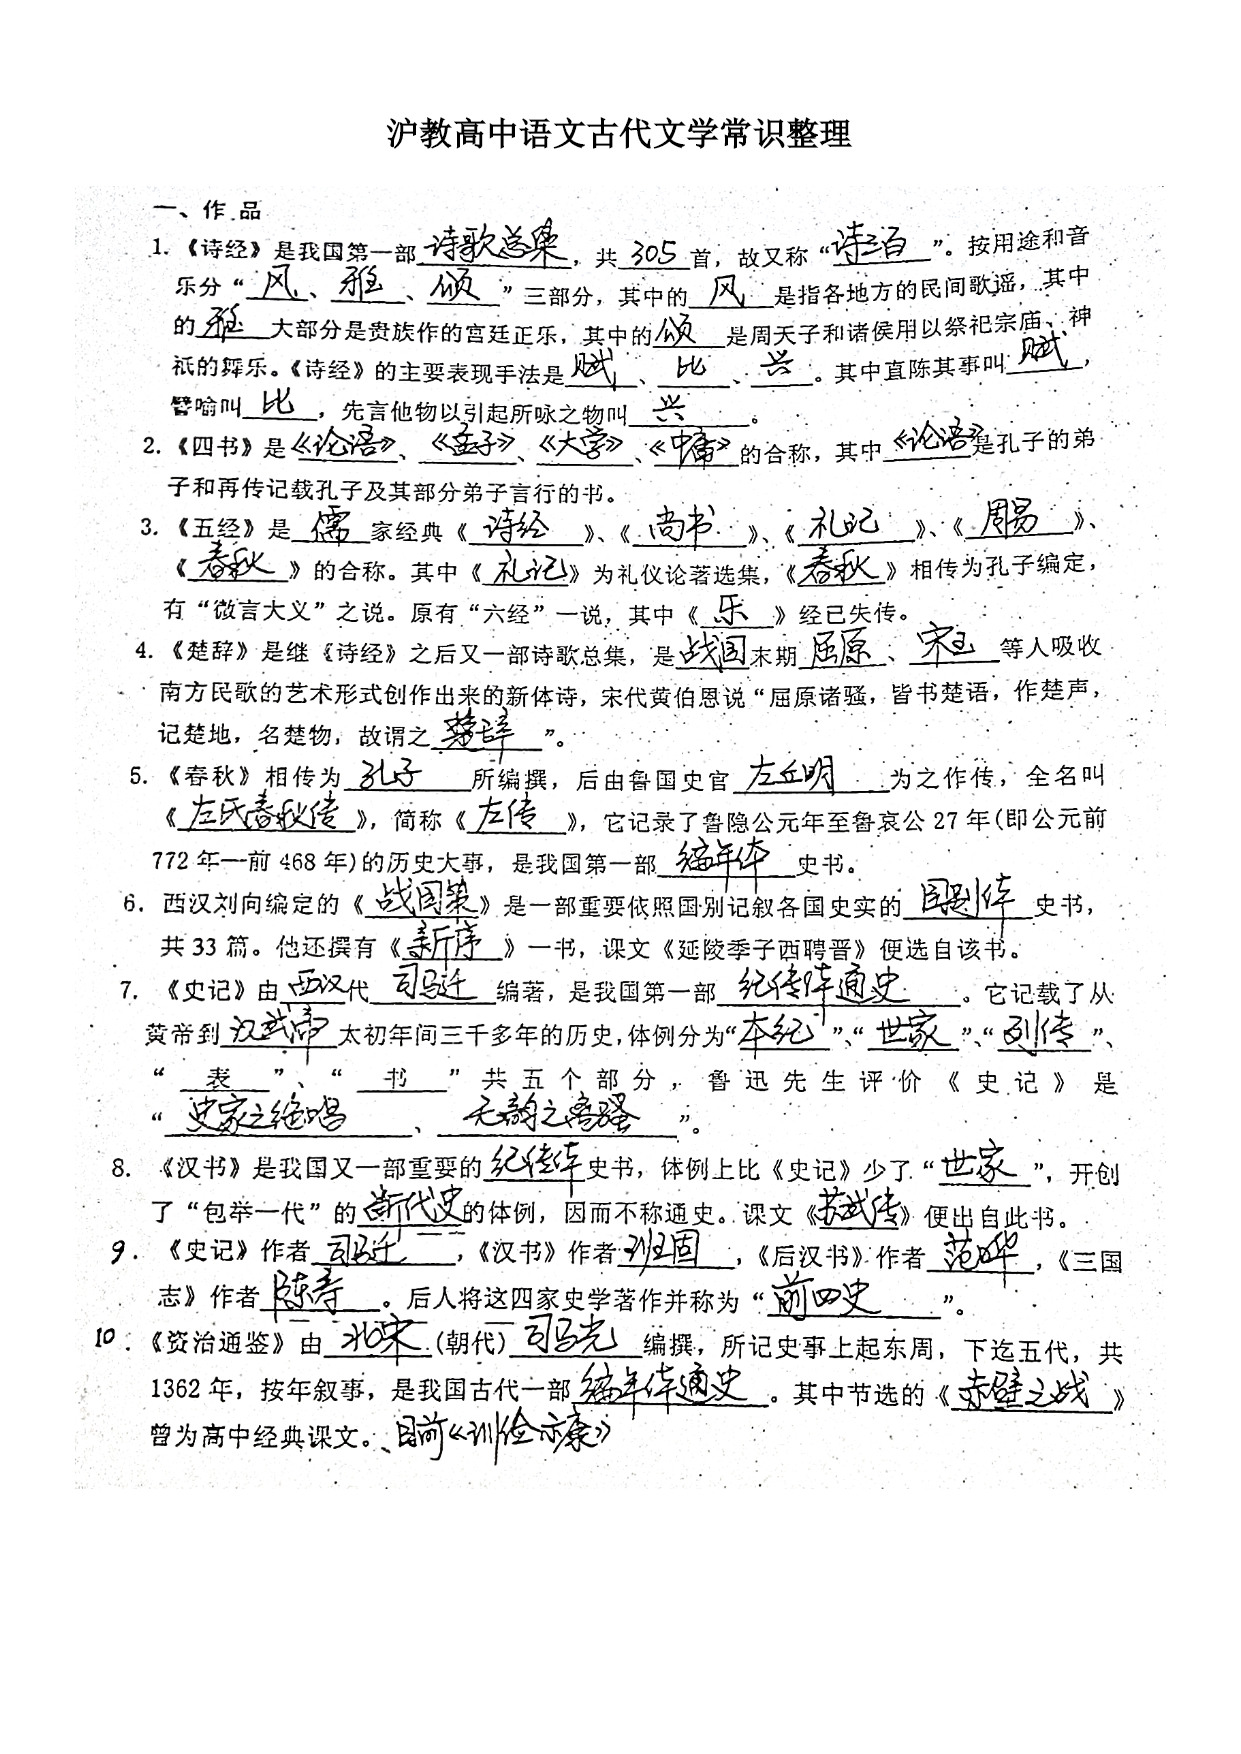 沪教高中语文古代文学常识整理
一、作品
1.《诗经》是我国第一部诗歌总集，共305首，故又称“诗三百”。按用途和音
乐分“风、雅、颂”三部分，其中的风是指各地方的民间歌谣，其中
的雅大部分是贵族作的宫廷正乐，其中的颂是周天子和诸侯用以祭祀宗庙、神
祇的舞乐。《诗经》的主要表现手法是赋、比、兴。其中直陈其事叫赋，
譬喻叫比，先言他物以引起所咏之物叫兴。
2.《四书》是《论语》、《孟子》、《大学》、《中庸》的合称，其中《论语》是孔子的弟
子和再传记载孔子及其部分弟子言行的书。
3.《五经》是儒家经典《诗经》、《尚书》、《礼记》、《周易》、
《春秋》的合称。其中《礼记》为礼仪论著选集，《春秋》相传为孔子编定，
有“微言大义”之说。原有“六经”一说，其中《乐》经已失传。
4.《楚辞》是继《诗经》之后又一部诗歌总集，是战国末期屈原、宋玉等人吸收
南方民歌的艺术形式创作出来的新体诗，宋代黄伯恩说“屈原诸骚，皆书楚语，作楚声，
记楚地，名楚物，故谓之楚辞”。
5.《春秋》相传为孔子所编撰，后由鲁国史官左丘明为之作传，全名叫
《左氏春秋传》，简称《左传》，它记录了鲁隐公元年至鲁哀公27年(即公元前
772年—前468年)的历史大事，是我国第一部编年体史书。
6.西汉刘向编定的《战国策》是一部重要依照国别记叙各国史实的国别体史书，
共33篇。他还撰有《新序》一书，课文《延陵季子西聘晋》便选自该书。
7.《史记》由西汉代司马迁编著，是我国第一部纪传体通史。它记载了从
黄帝到汉武帝太初年间三千多年的历史,体例分为“本纪”、“世家”、“列传”、
“表”、“书”共五个部分，鲁迅先生评价《史记》是
“史家之绝唱、无韵之离骚”。
8.《汉书》是我国又一部重要的纪传体史书，体例上比《史记》少了“世家”，开创
了“包举一代”的断代史的体例，因而不称通史。课文《苏武传》便出自此书。
9.《史记》作者司马迁，《汉书》作者班固，《后汉书》作者范晔，《三国
志》作者陈寿。后人将这四家史学著作并称为“前四史”。
10.《资治通鉴》由北宋(朝代)司马光编撰，所记史事上起东周，下迄五代，共
1362年，按年叙事，是我国古代一部编年体通史。其中节选的《赤壁之战》
曾为高中经典课文。、目前《训俭示康》